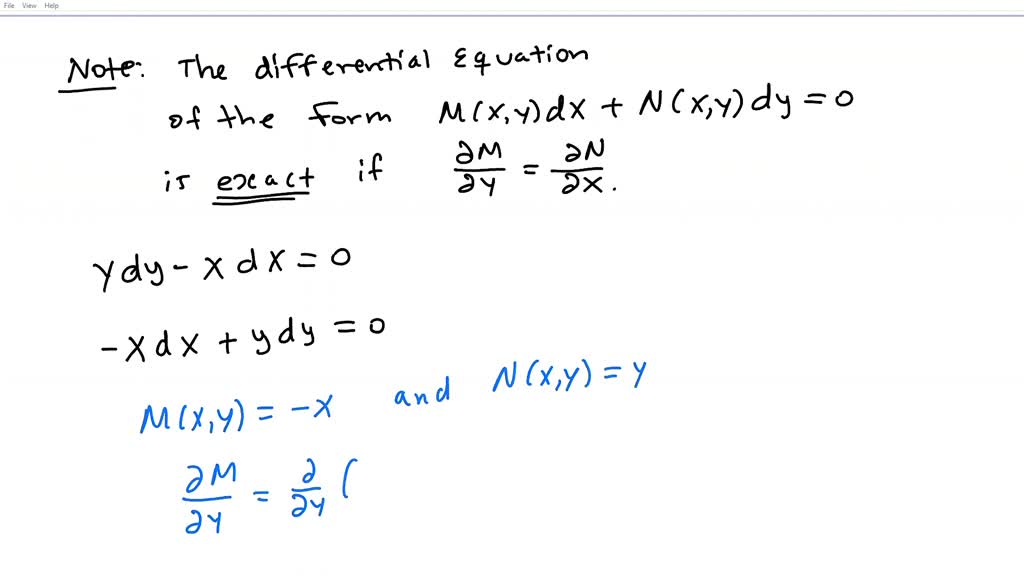 File View Help
Note: The differential Equation
of the form M(x,y)dx + N(x,y)dy = 0
is exact if ∂M/∂y = ∂N/∂x.
ydy - xdx = 0
-xdx + ydy = 0
M(x,y) = -x and N(x,y) = y
∂M/∂y = ∂/∂y (